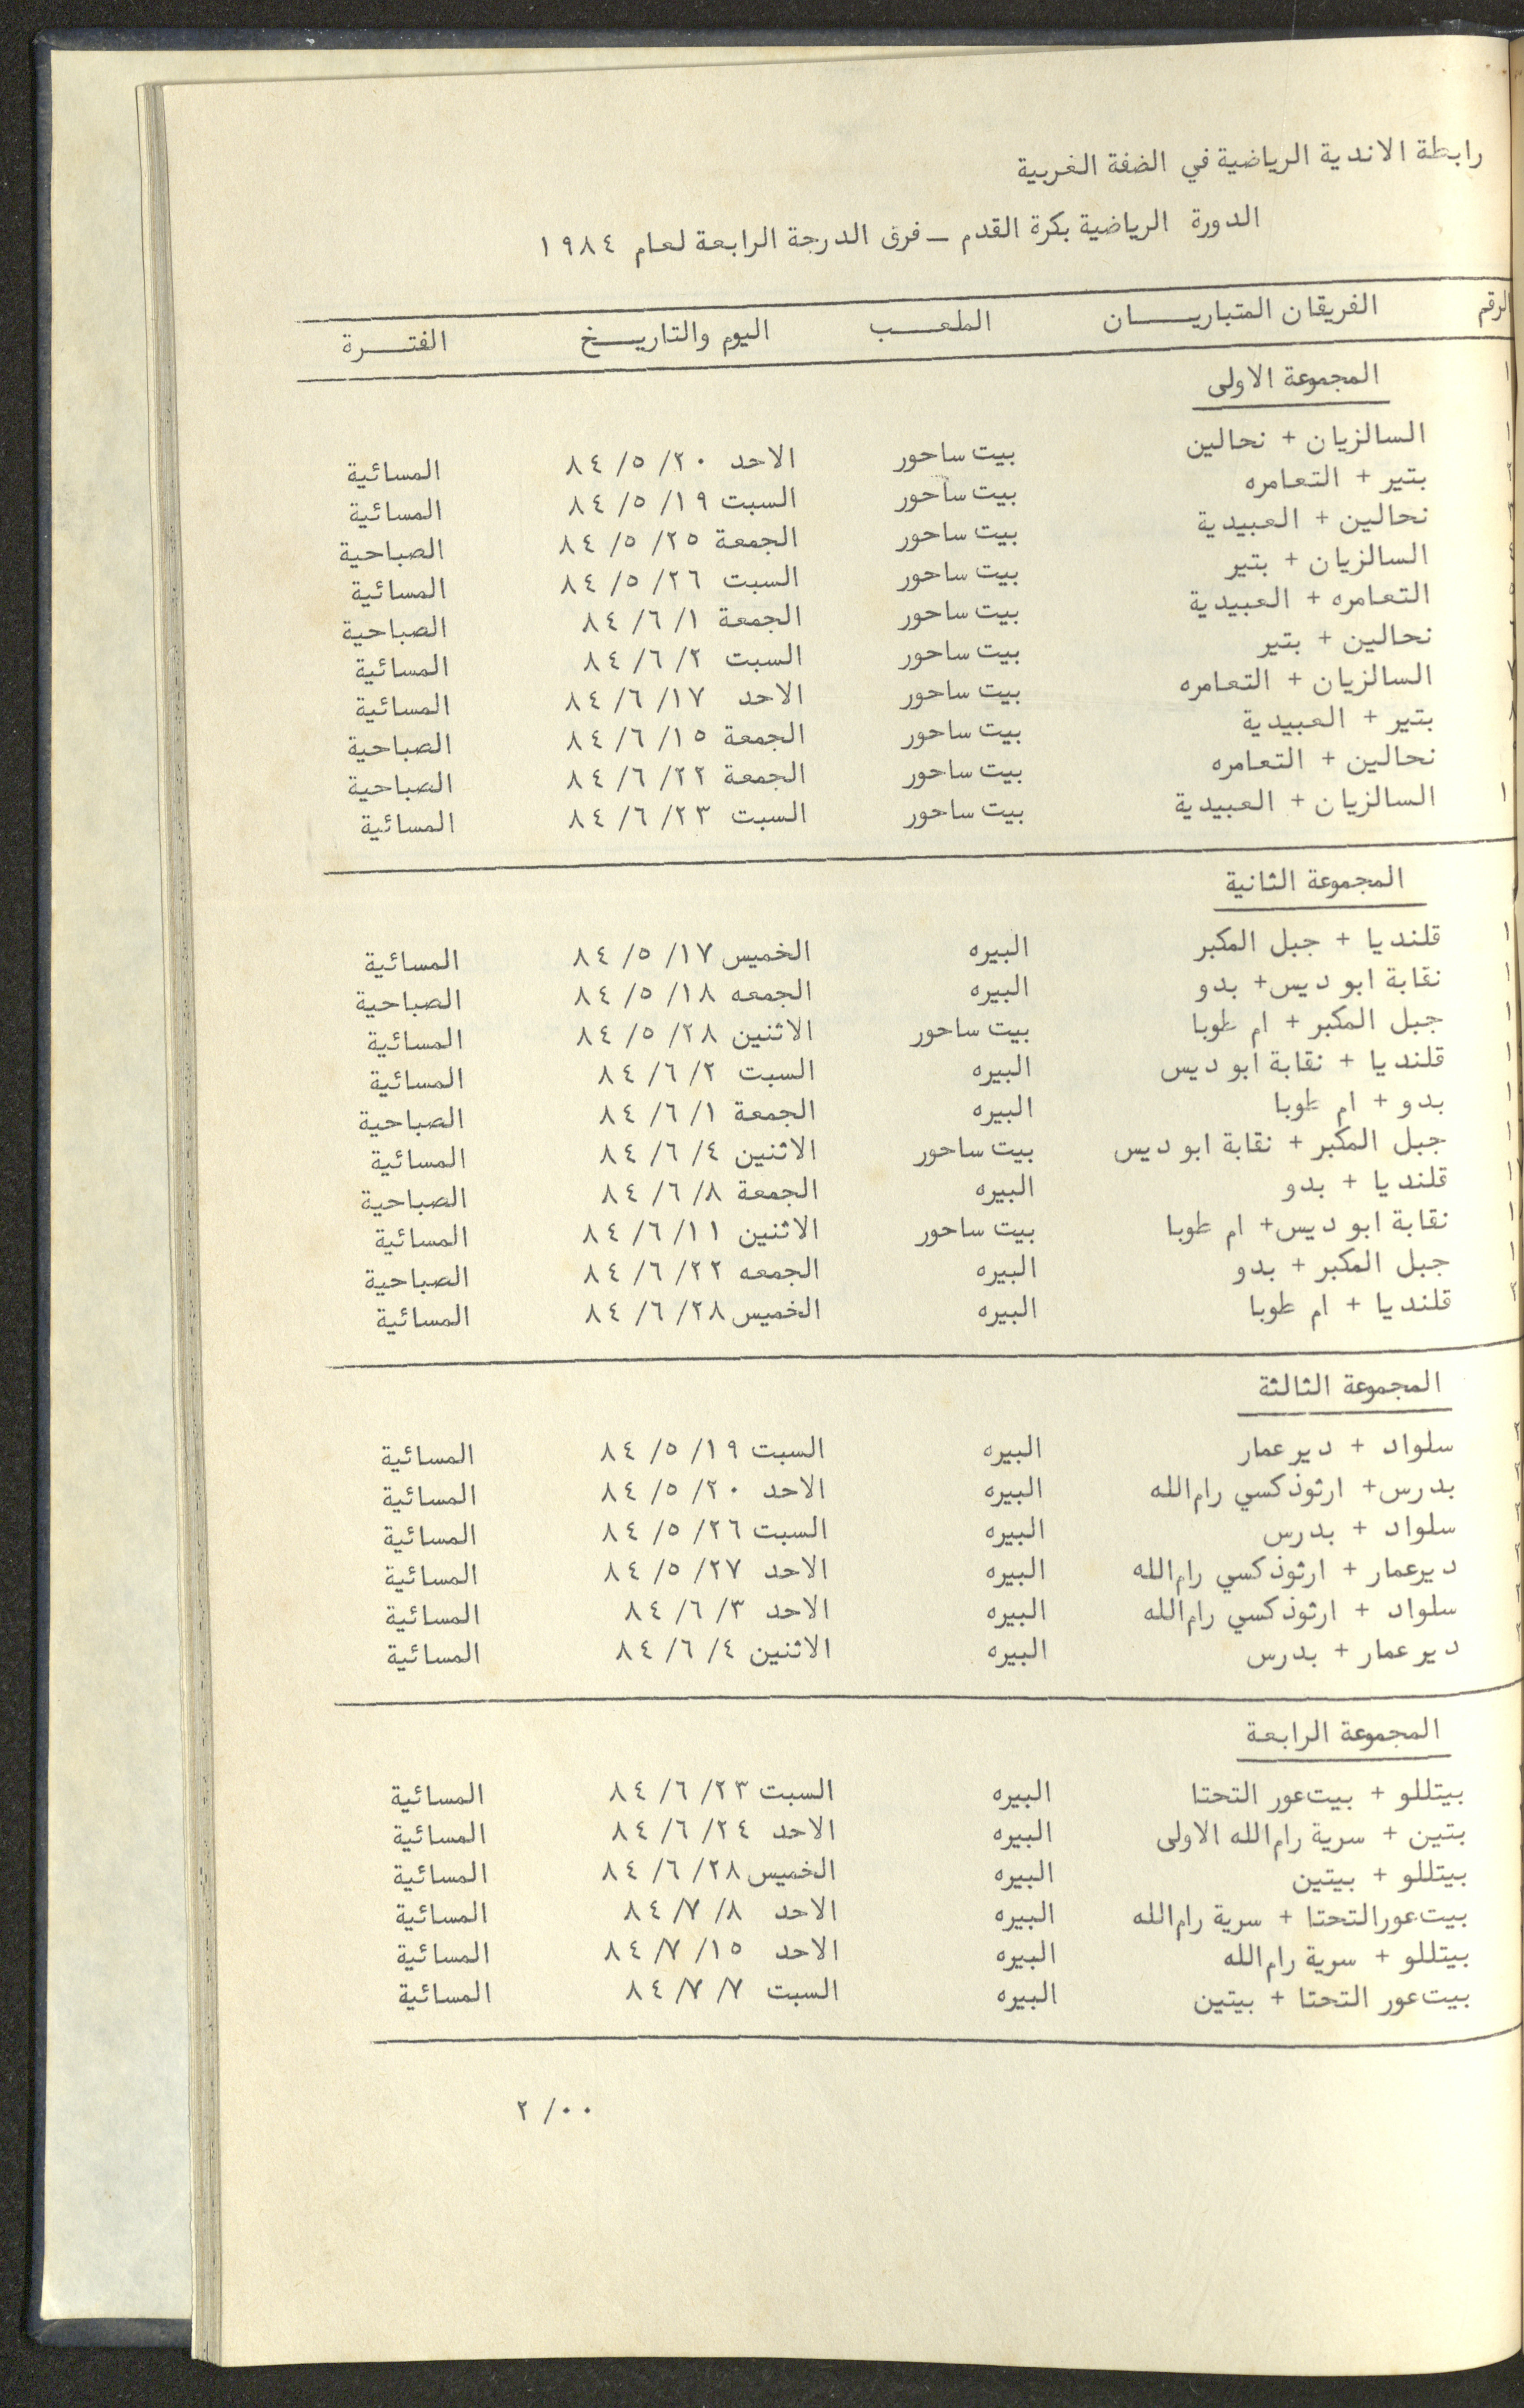 رابطة الاندية الرياضية في الضفة الغربية
الدورة الرياضية بكرة القدم ــ فرق الدرجة الرابعة لعام ١٩٨٤
الرقم الفريقان المتباريـــــان الملعـــب اليوم والتاريــخ الفتـــرة
المجموعة الاولى
السالزيان + نحالين بيت ساحور الاحد ٢٠/ ٥/ ٨٤ المسائية
بتير + التعامره بيت ساحور السبت ١٩/ ٥/ ٨٤ المسائية
نحالين + العبيدية بيت ساحور الجمعة ٢٥/ ٥/ ٨٤ الصباحية
السالزيان + بتير بيت ساحور السبت ٢٦/ ٥/ ٨٤ المسائية
التعامره + العبيدية بيت ساحور الجمعة ١/ ٦/ ٨٤ الصباحية
نحالين + بتير بيت ساحور السبت ٢/ ٦/ ٨٤ المسائية
السالزيان + التعامره بيت ساحور الاحد ١٧/ ٦/ ٨٤ المسائية
بتير + العبيدية بيت ساحور الجمعة ١٥/ ٦/ ٨٤ الصباحية
نحالين + التعامره بيت ساحور الجمعة ٢٢/ ٦/ ٨٤ الصباحية
السالزيان + العبيدية بيت ساحور السبت ٢٣/ ٦/ ٨٤ المسائية
المجموعة الثانية
قلنديا + جبل المكبر البيره الخميس ١٧/ ٥/ ٨٤ المسائية
نقابة ابو ديس+ بدو البيره الجمعه ١٨/ ٥/ ٨٤ الصباحية
جبل المكبر + ام طوبا بيت ساحور الاثنين ٢٨/ ٥/ ٨٤ المسائية
قلنديا + نقابة ابو ديس البيره السبت ٢/ ٦/ ٨٤ المسائية
بدو + ام طوبا البيره الجمعة ١/ ٦/ ٨٤ الصباحية
جبل المكبر + نقابة ابو ديس بيت ساحور الاثنين ٤/ ٦/ ٨٤ المسائية
قلنديا + بدو البيره الجمعة ٨/ ٦/ ٨٤ الصباحية
نقابة ابو ديس+ ام طوبا بيت ساحور الاثنين ١١/ ٦/ ٨٤ المسائية
جبل المكبر + بدو البيره الجمعه ٢٢/ ٦/ ٨٤ الصباحية
قلنديا + ام طوبا البيره الخميس ٢٨/ ٦/ ٨٤ المسائية
المجموعة الثالثة
سلواد + دير عمار البيره السبت ١٩/ ٥/ ٨٤ المسائية
بدرس+ ارثوذكسي رام الله البيره الاحد ٢٠/ ٥/ ٨٤ المسائية
سلواد + بدرس البيره السبت ٢٦/ ٥/ ٨٤ المسائية
ديرعمار + ارثوذكسي رام الله البيره الاحد ٢٧/ ٥/ ٨٤ المسائية
سلواد + ارثوذكسي رام الله البيره الاحد ٣/ ٦/ ٨٤ المسائية
دير عمار + بدرس البيره الاثنين ٤/ ٦/ ٨٤ المسائية
المجموعة الرابعة
بيتللو + بيت عور التحتا البيره السبت ٢٣/ ٦/ ٨٤ المسائية
بتين + سرية رام الله الاولى البيره الاحد ٢٤/ ٦/ ٨٤ المسائية
بيتللو + بيتين البيره الخميس ٢٨/ ٦/ ٨٤ المسائية
بيت عورالتحتا + سرية رام الله البيره الاحد ٨/ ٧/ ٨٤ المسائية
بيتللو + سرية رام الله البيره الاحد ١٥/ ٧/ ٨٤ المسائية
بيت عور التحتا + بيتين البيره السبت ٧/ ٧/ ٨٤ المسائية
٠٠/ ٢